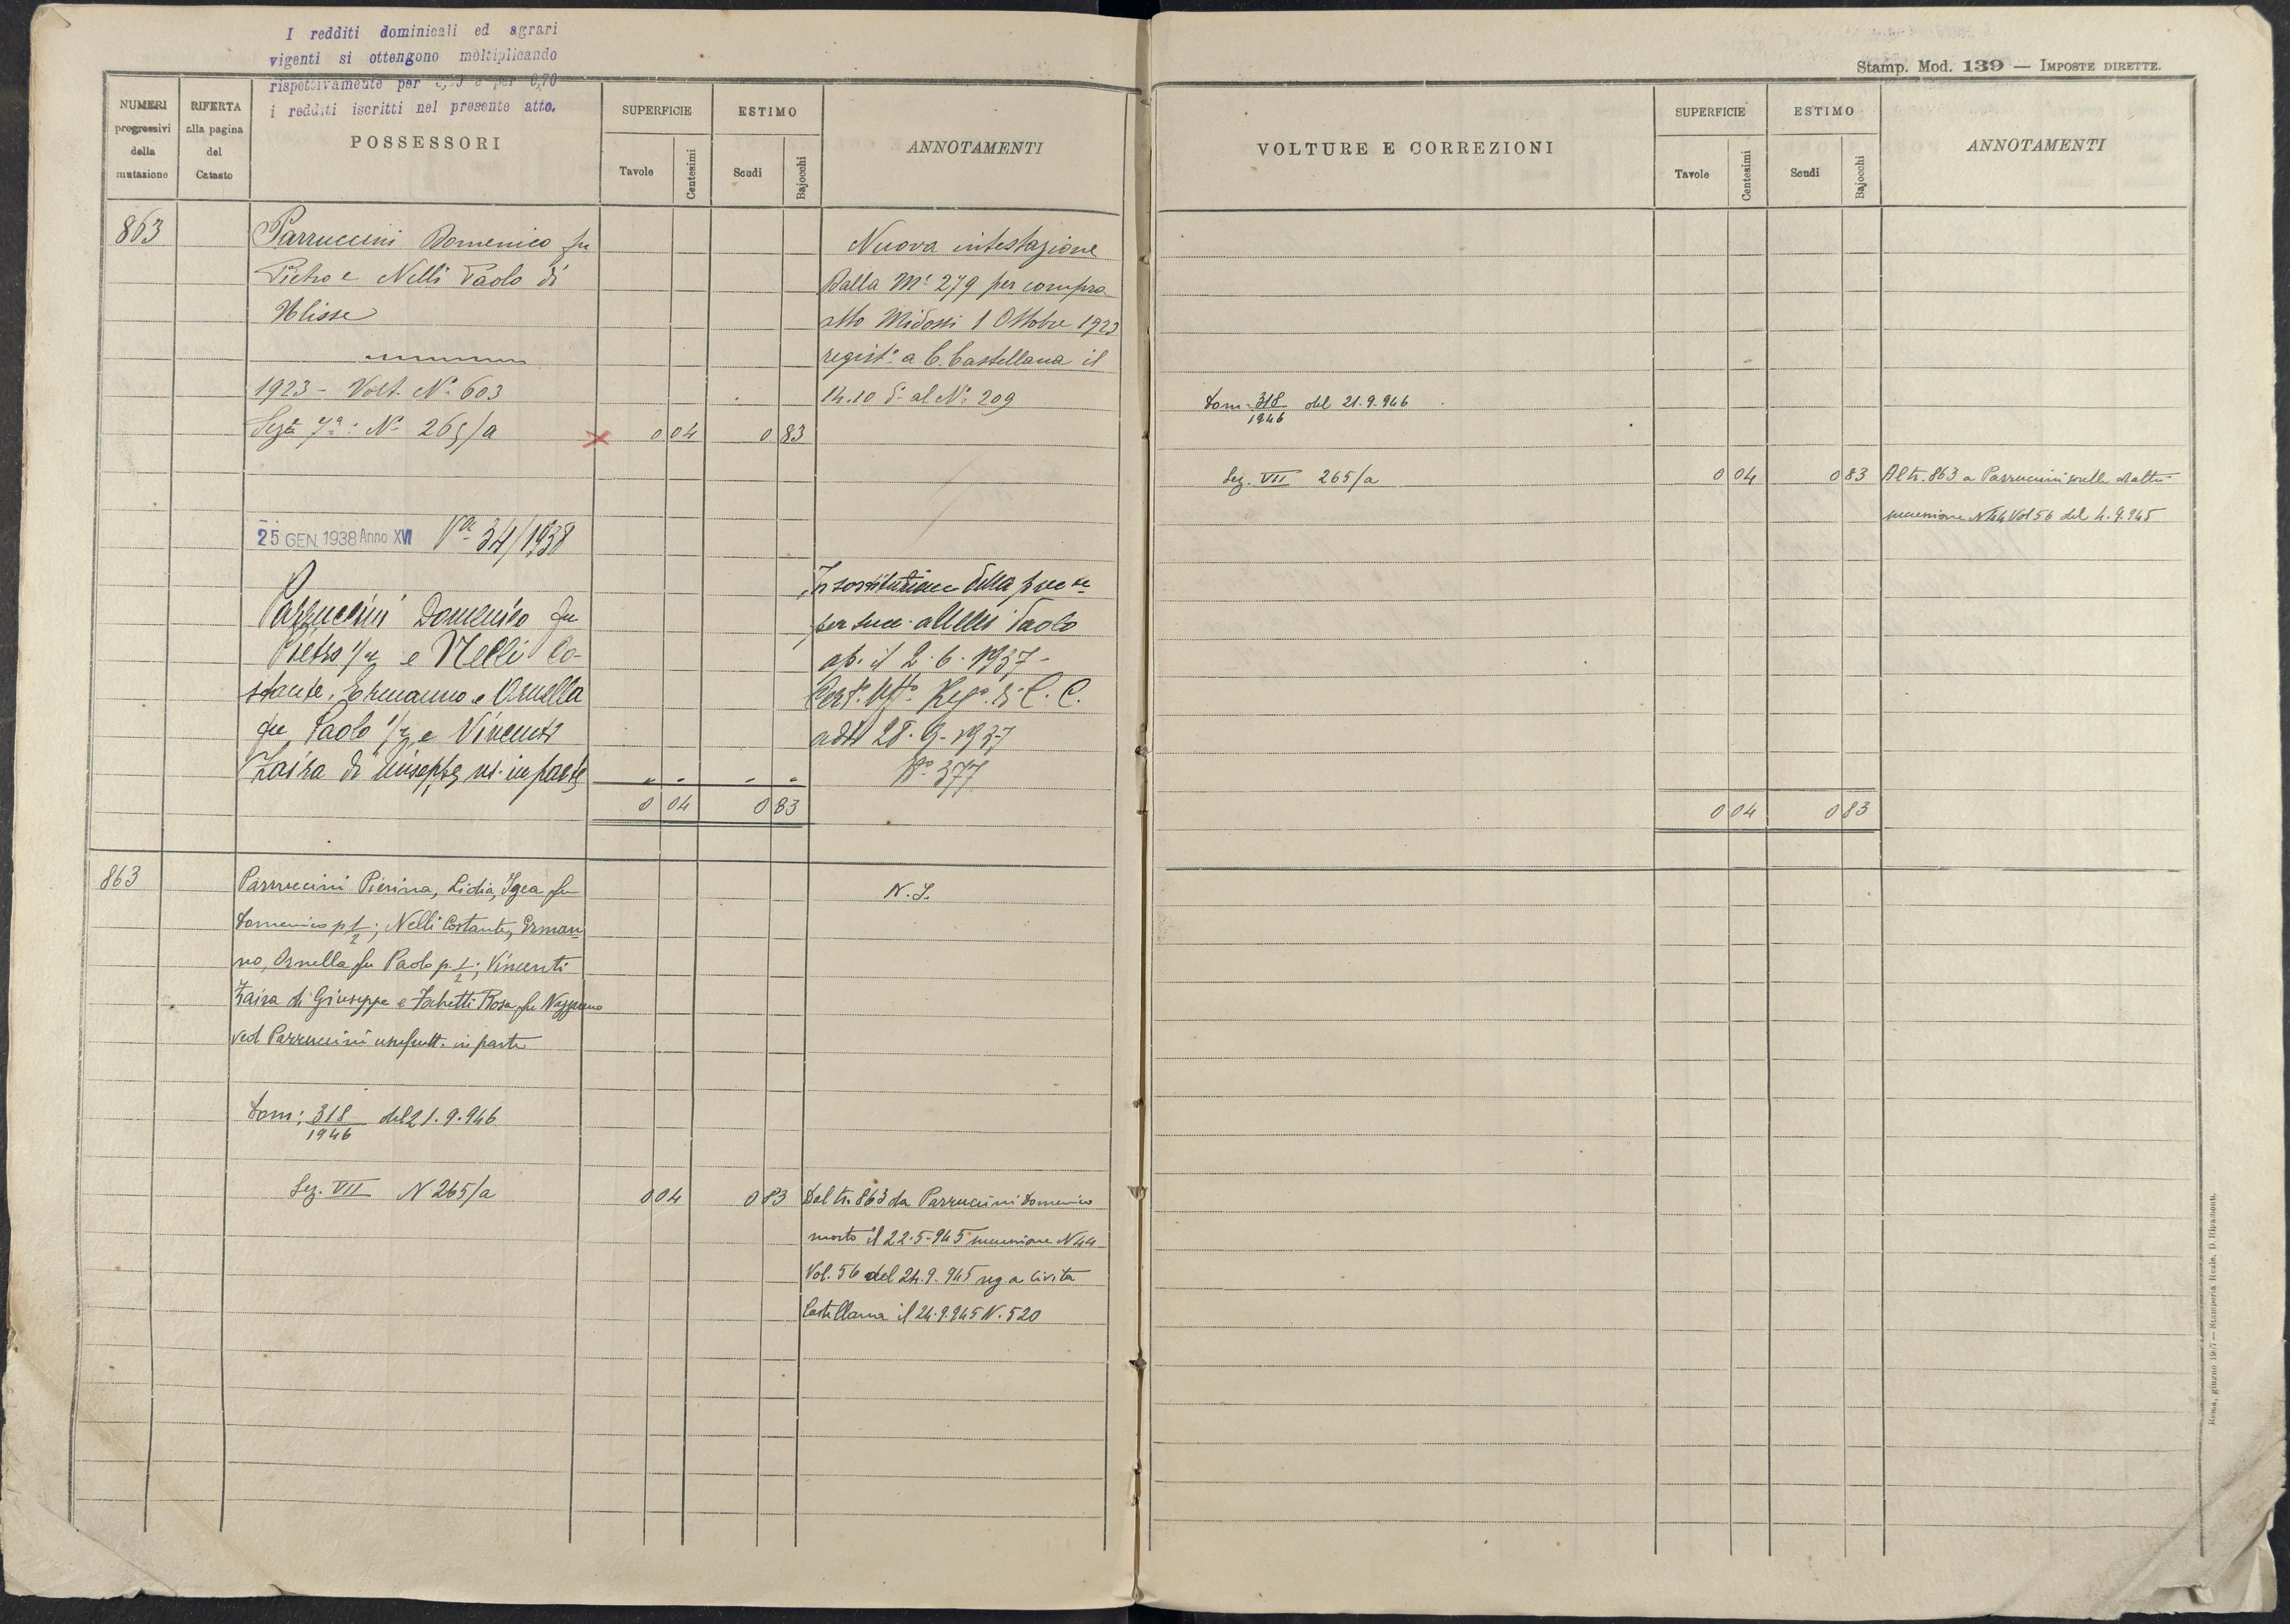 I redditi dominicali ed agrari
vigenti si ottengono moltiplicando
rispettivamente per e per 0,70
i redditi iscritti nel presente atto.
NUMERI
progressivi
della
mutazione
RIFERTA
alla pagina
del
Catasto
POSSESSORI
SUPERFICIE
Tavole
Centesimi
ESTIMO
Scudi
Bajocchi
ANNOTAMENTI
863
Parruccini Domenico fu
Pietro e Nelli Paolo di
Ulisse
1923 - Volt. N° 603
Sez 7ª: N° 265/a
0 04 0 83
Nuova intestazione
dalla M° 279 per compra
atto Midossi 1 Ottobre 1923
regist° a C. Castellana il
14.10 d° al N° 209
25 GEN. 1938 Anno XVI
Vª 34/1938
Parruccini Domenico fu
Pietro 1/2 e Nelli Co-
stante, Ermanno e Ornella
fu Paolo 1/2 e Vincenti
Zaira di Giuseppe us. in parte
" " " "
In sostituzione della
per succ. Paolo
ap. il 2.6.1937 -
Cert. Uff° Reg° di C. C.
addì 28.9.1937
N° 377
0 04 0 83
863
Parruccini Pierina, Lidia, Igea fu
Domenico p 1/2; Nelli Costante, Erman
no, Ornella fu Paolo p. 1/2; Vincenti
Zaira di Giuseppe e Rosa fu Nazzareno
ved Parruccini usufrutt. in parte
N. I.
Dom: 318/1946 del 21.9.946
Sez. VII N 265/a
0 04 0 83
Dal tr. 863 da Parruccini Domenico
morto il 22.5.945 successione N 44
Vol. 56 del 24.9.945 reg a Civita
Castellana il 24.9.945 N. 520
Stamp. Mod. 139 — IMPOSTE DIRETTE.
VOLTURE E CORREZIONI
SUPERFICIE
Tavole
Centesimi
ESTIMO
Scudi
Bajocchi
ANNOTAMENTI
Dom. 318/1946 del 21.9.946
Sez. VII 265/a
0 04 0 83
Al tr. 863 a Parruccini
successione N 44 Vol 56 del 4.9.945
0 04 0 83
Roma, giugno — Stamperia Reale, D. Ripamonti.